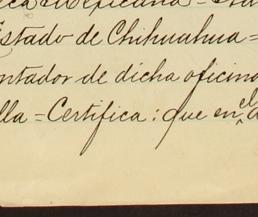 Mexicana =
Estado de Chihuahua =
ntador de dicha oficina
lla = Certifica: que en el